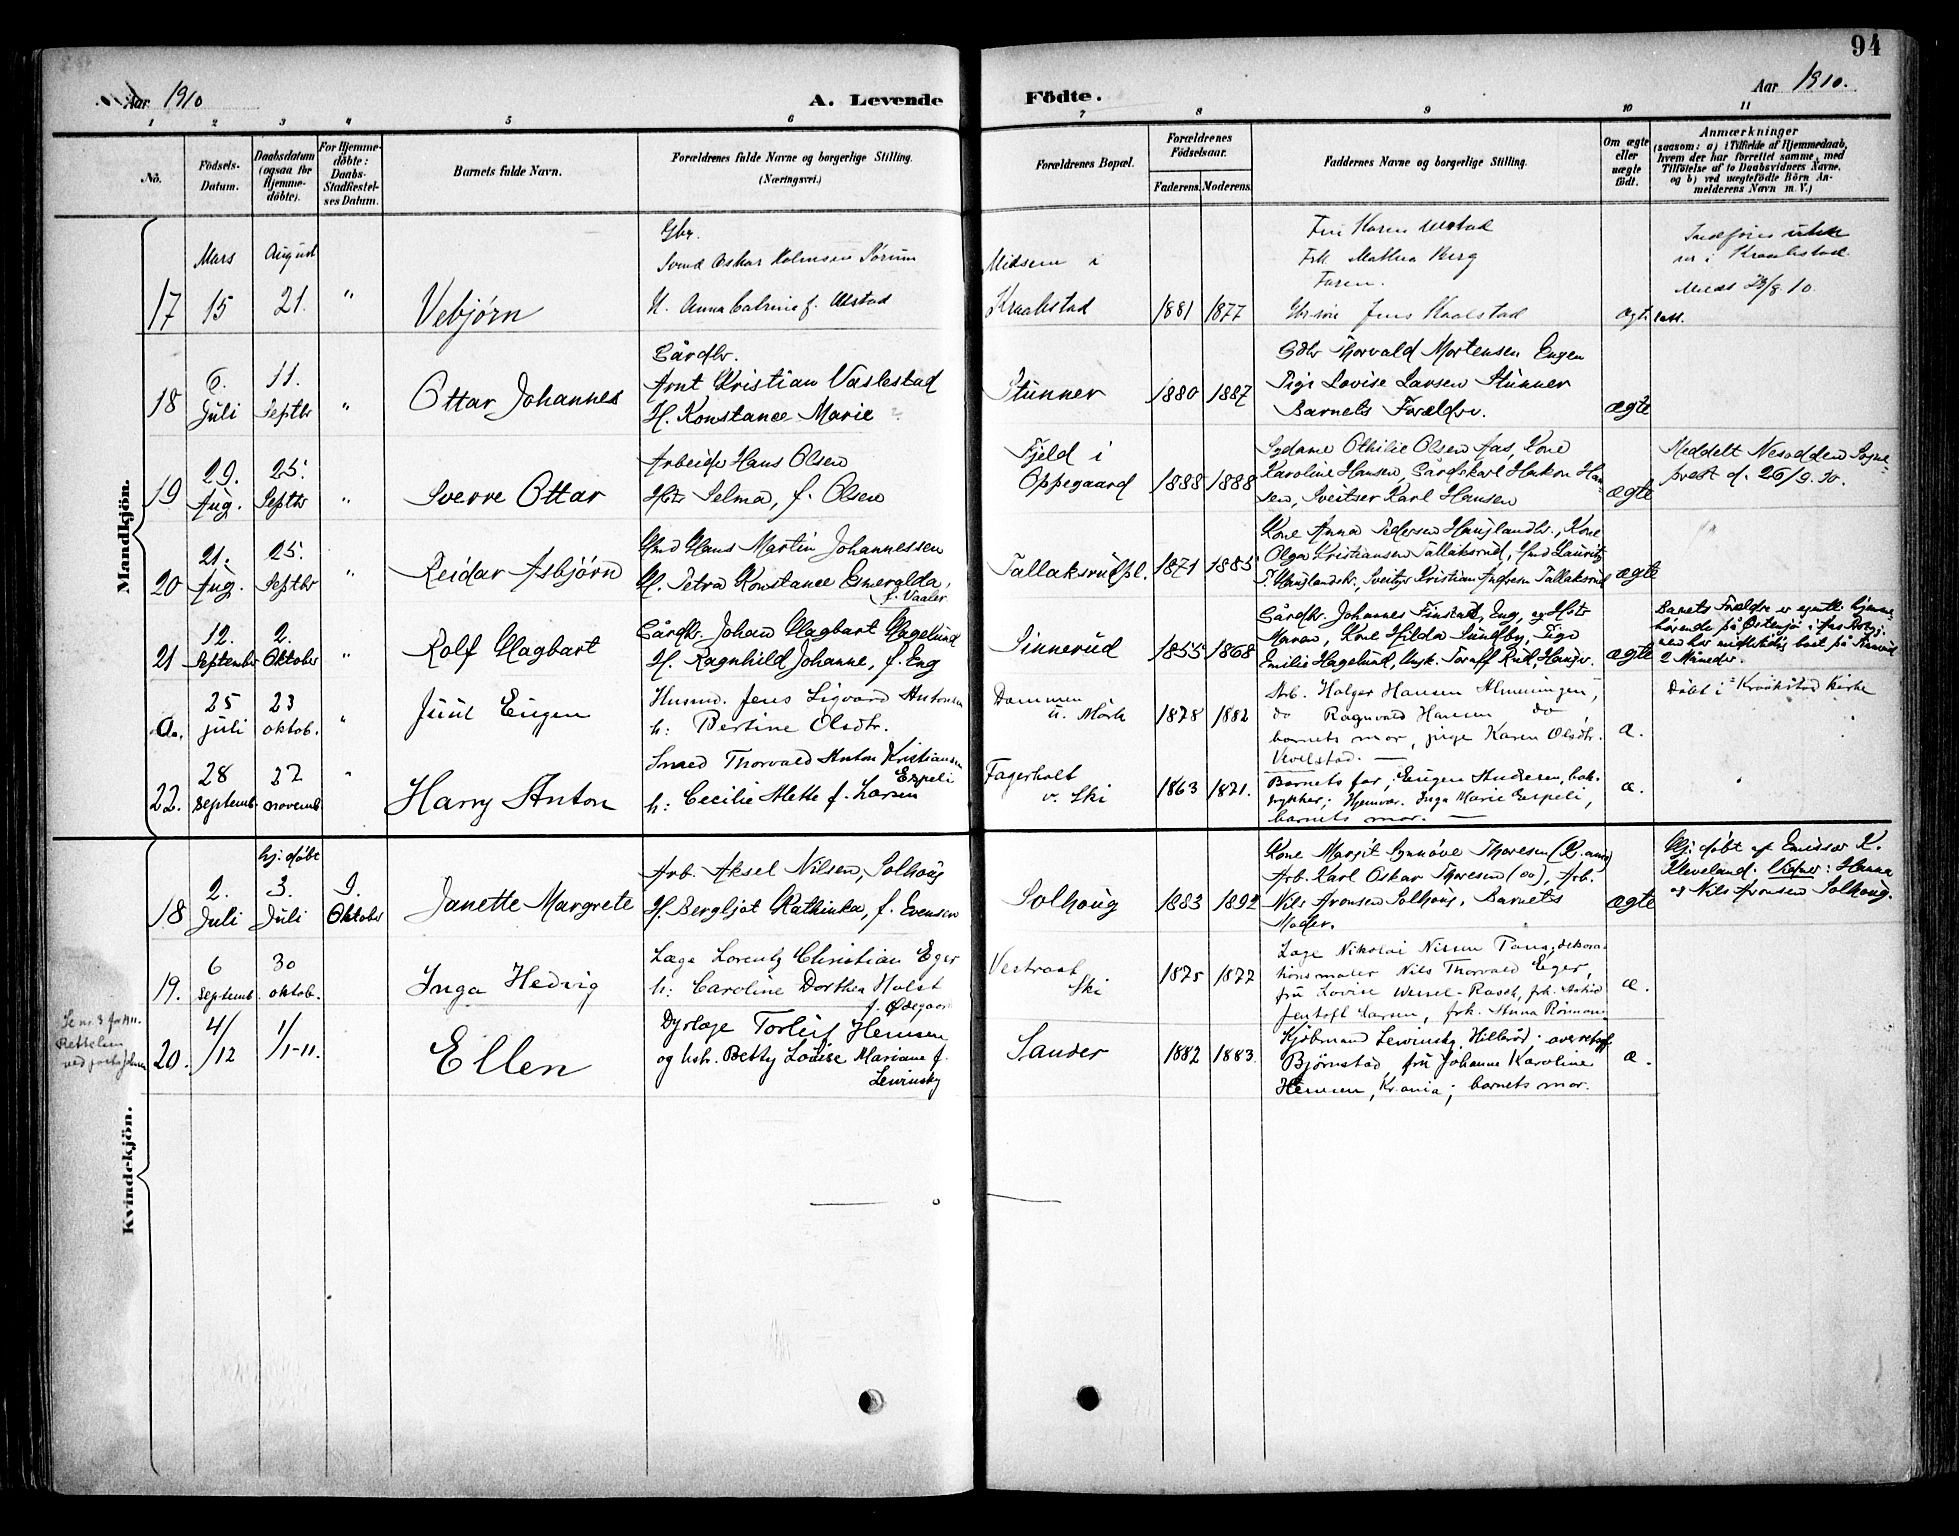 94
Aar 1910
A. Levende Födte.
Aar 1910.
1 2 3 4 5 6 7 8 9 10 11
No.
Födsels-
Datum.
Daabsdatum
(ogsaa for
Hjemme-
döbte).
For Hjemme-
döbte:
Daabs-
Stadfæstel-
ses Datum.
Barnets fulde Navn.
Forældrenes fulde Navne og borgerlige Stilling.
(Næringsvei.)
Forældrenes Bopæl.
Forældrenes
Födselsaar.
Faderens. Moderens.
Faddernes Navne og borgerlige Stilling.
Om ægte
eller
uægte
födt.
Anmærkninger
(saasom: a) i Tilfælde af Hjemmedaab,
hvem der har forrettet samme, med
Tilföielse af to Daabsvidners Navne,
og b) ved uægtefödte Börn An-
melderens Navn m. V.)
Mandkjön.
17
Mars
15
August
21.
"
Vebjørn
Gbr.
Svend Oskar Holmsen Sørum
H. Anna Catrine f. Ulstad
Midsem i
Kraakstad
1881 1877
Fru Karen Ulstad
Frk Mathea Berg
Faren.
Jens Kaalstad
ægt.
i Kraakstad.
Medd 23/8 10.
18
6.
Juli
11.
Septbr
"
Ottar Johannes
Gårdbr.
Arnt Kristian Vaslestad
H. Konstance Marie
Stunner
1880 1887
Gdbr Thorvald Mortensen Engen
Pige Lovise Larsen Stunner
Barnets Forældre.
ægte
19
29.
Aug.
25.
Septbr
"
Sverre Ottar
Arbeider Hans Olsen
Hstr Selma, f. Olsen
Fjeld i
Oppegaard
1888 1888
Sydame Othilie Olsen Aas, Kone
Karoline Hansen, Gårdskarl Hakon Han-
sen, Sveitser Karl Hansen
ægte
Meddelt Nesodden Sogne-
prest d. 26/9. 10.
20
21.
Aug.
25.
Septbr
"
Reidar Asbjørn
Hmd Hans Martin Johannessen
H. Petra Konstance Esmeralda,
f. Vaaler
Tallaksrudpl.
1871 1885
Kone Anna Pedersen Hauglandbr., Kone
Olga Kristiansen Tallaksrud, Hmd Lauritz
P. Hauglandsbr, Sveitser Kristian Andresen Tallaksrud
ægte
21
12.
September
2.
Oktober
"
Rolf Hagbart
Gårdbr. Johan Hagbart Hagelund
H. Ragnhild Johanne, f. Eng
Sinnerud
1855 1868
Gårdbr. Johannes Finstad, Eng, og Hstr
Maren, Kone Hilda Sundby, Pige
Emilie Hagelund, Ungk. Toralf Rud, Haugr.
ægte
Barnets Forældre er egentl. hjemme-
hørende på Østensjø i
men har midlertidig boet på Sinnerud
2 Måneder.
a.
25
juli
23
oktob.
"
Juul Eugen
Husmd. Jens Sigvard Antonsen
h: Bertine Olsdtr.
Dammen
u. Mörk
1878 1882
Arb. Holger Hansen Almeningen,
do Ragnvald Hansen do,
barnets mor, pige Karen Olsdtr.
Vevelstad.
æ.
Døbt i Kraakstad kirke
22.
28
septemb.
27
novemb.
"
Harry Anton
Smed Thorvald Anton Kristiansen
Espeli
h: Cecilie Alette f. Larsen
Fagerholt
v. Ski
1863 1871.
Barnets far, Eugen Andersen, bok-
trykker; Hjemvær. Inga Marie Espeli,
barnets mor.
æ.
Kvindekjön.
18
2.
Juli
hj. døbt
3.
Juli
9.
Oktober
Janette Margrete
Arb. Aksel Nilsen, Solhoug
H. Bergljot Kathinka, f. Evensen
Solhoug
1883 1892
Kone Margit Synnöve Thoresen (Kr.ania)
Arb. Karl Oskar Thoresen (do), Arb.
Nils Aronsen Solhoug, Barnets
Moder.
ægte
Hj. døbt af Emissær K.
Kleveland. Vidner: Hanna
og Nils Aronsen Solhoug.
19.
6
septemb.
30
oktob.
Inga Hedvig
Læge Lorentz Christian Eger
h: Caroline Dorthea Holst
f. Ødegaard
Vestraat
Ski
1875 1877
Læge Nikolai Nissen Paus, dekora-
tionsmaler Nils Thorvald Eger,
frü Lovise Wessel-Rasch, frk. Astrid
Jentoft Larsen, frk. Anna
æ.
Se nr. 3 for 1911.
Rettelsen
20.
4/12
1/1-11.
Ellen
Dyrlæge Torleif Hemsen
og hstr. Betty Louise Mariane f.
Lewinsky
Sander
1882 1883.
Kjöbmand Lewinsky, Hilleröd; overretssf.
Björnstad, frü Johanne Karoline
Hemsen, Kr.ania; barnets mor.
æ.